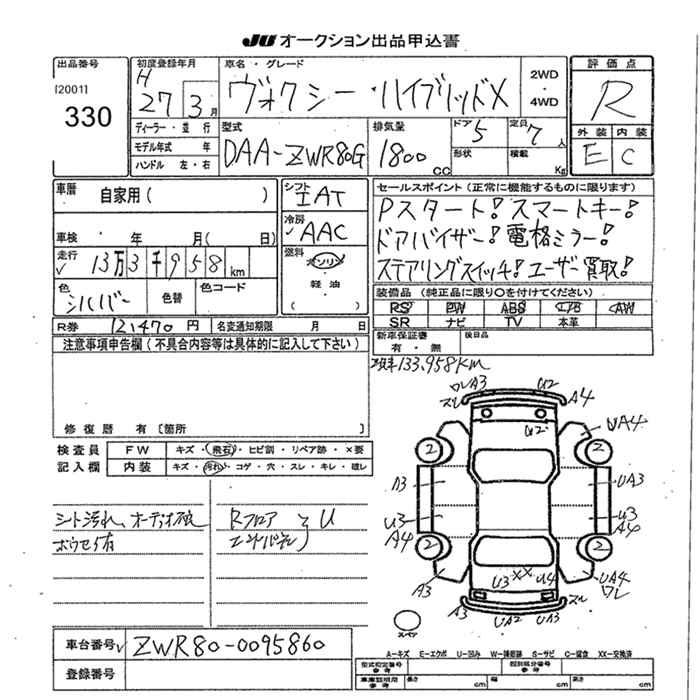 JU オークション出品申込書
出品番号 初度登録年月 車名・グレード 2WD 評価点
[2001] H
330 27 3月 ヴォクシー・ハイブリッドX ・4WD R
ディーラー・並行 型式 排気量 ドア 定員 外装 内装
モデル年式 年 DAA-ZWR80G 1800cc 5 7人 E C
ハンドル 左・右 形状 積載 Kg
車歴 自家用( ) シフト IAT セールスポイント(正常に機能するものに限ります)
冷房 Pスタート! スマートキー!
車検 年 月( 日) AAC ドアバイザー! 電格ミラー!
走行 13万3千958km 燃料 ガソリン ステアリングスイッチ! ユーザー買取!
色 シルバー 色替 色コード ・軽油・ ( ) 装備品(純正品に限り○を付けてください)
RS PW ABS エアB AW
R券 12,470円 名変通知期限 月 日 SR ナビ TV 本革
注意事項申告欄(不具合内容等は具体的に記入して下さい) 新車保証書 後日品
有・無
133,958KM
修復歴 有〔箇所 〕
検査員 FW キズ・飛石・ヒビ割・リペア跡・×要
記入欄 内装 キズ・汚れ・コゲ・穴・スレ・キレ・破レ
シート汚れ、オーディオ欠 Rフロア U
エンドパネル
ワレA3 U2
スレ U2 A4
2 2 UA4
A3 UA3
U3 U3
A4 A4
2 2
A3 U3 XX U4 UA4
ワレ
A3 UA2 UA3 スレ
スペア
A−キズ E−エクボ U−凹み W−補修跡 S−サビ C−腐食 XX−交換済
車台番号 ZWR80-0095860 型式指定番号 参考 類別区分番号 参考
登録番号 車庫証明用 参考 長さ cm 幅 cm 高さ cm